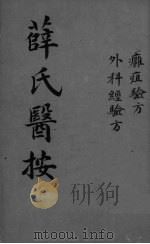 癰疽驗方
外科經驗方
薛氏醫按
研狗
mtoou.info